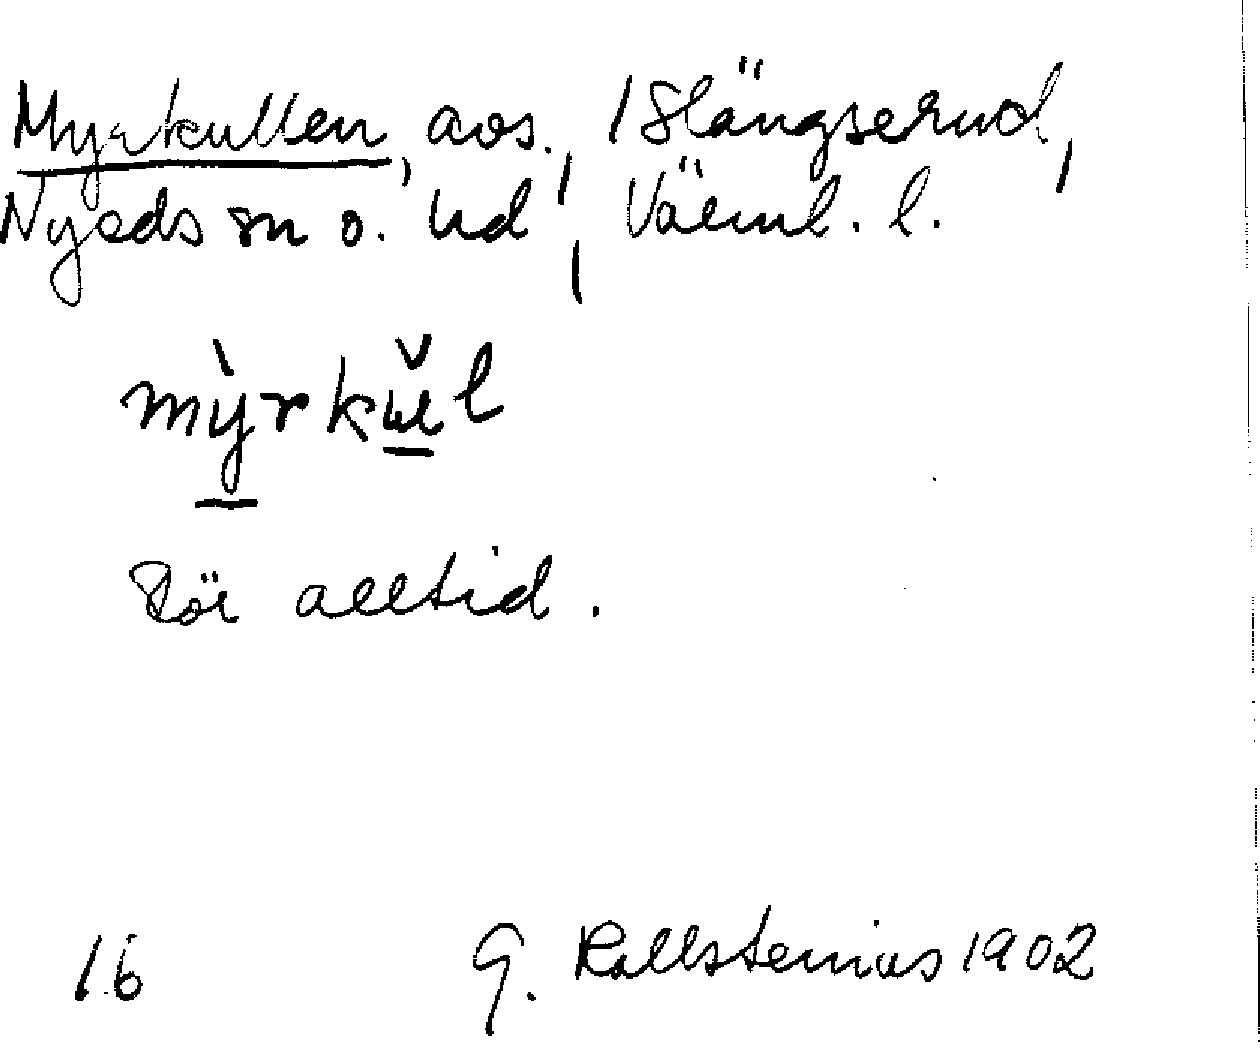 Myrkullen, avs., 1 Slängserud,
Nyeds sn o. hd, Värml. l.
mỳrkŭl
Rör alltid.
16 G. Kallstenius 1902